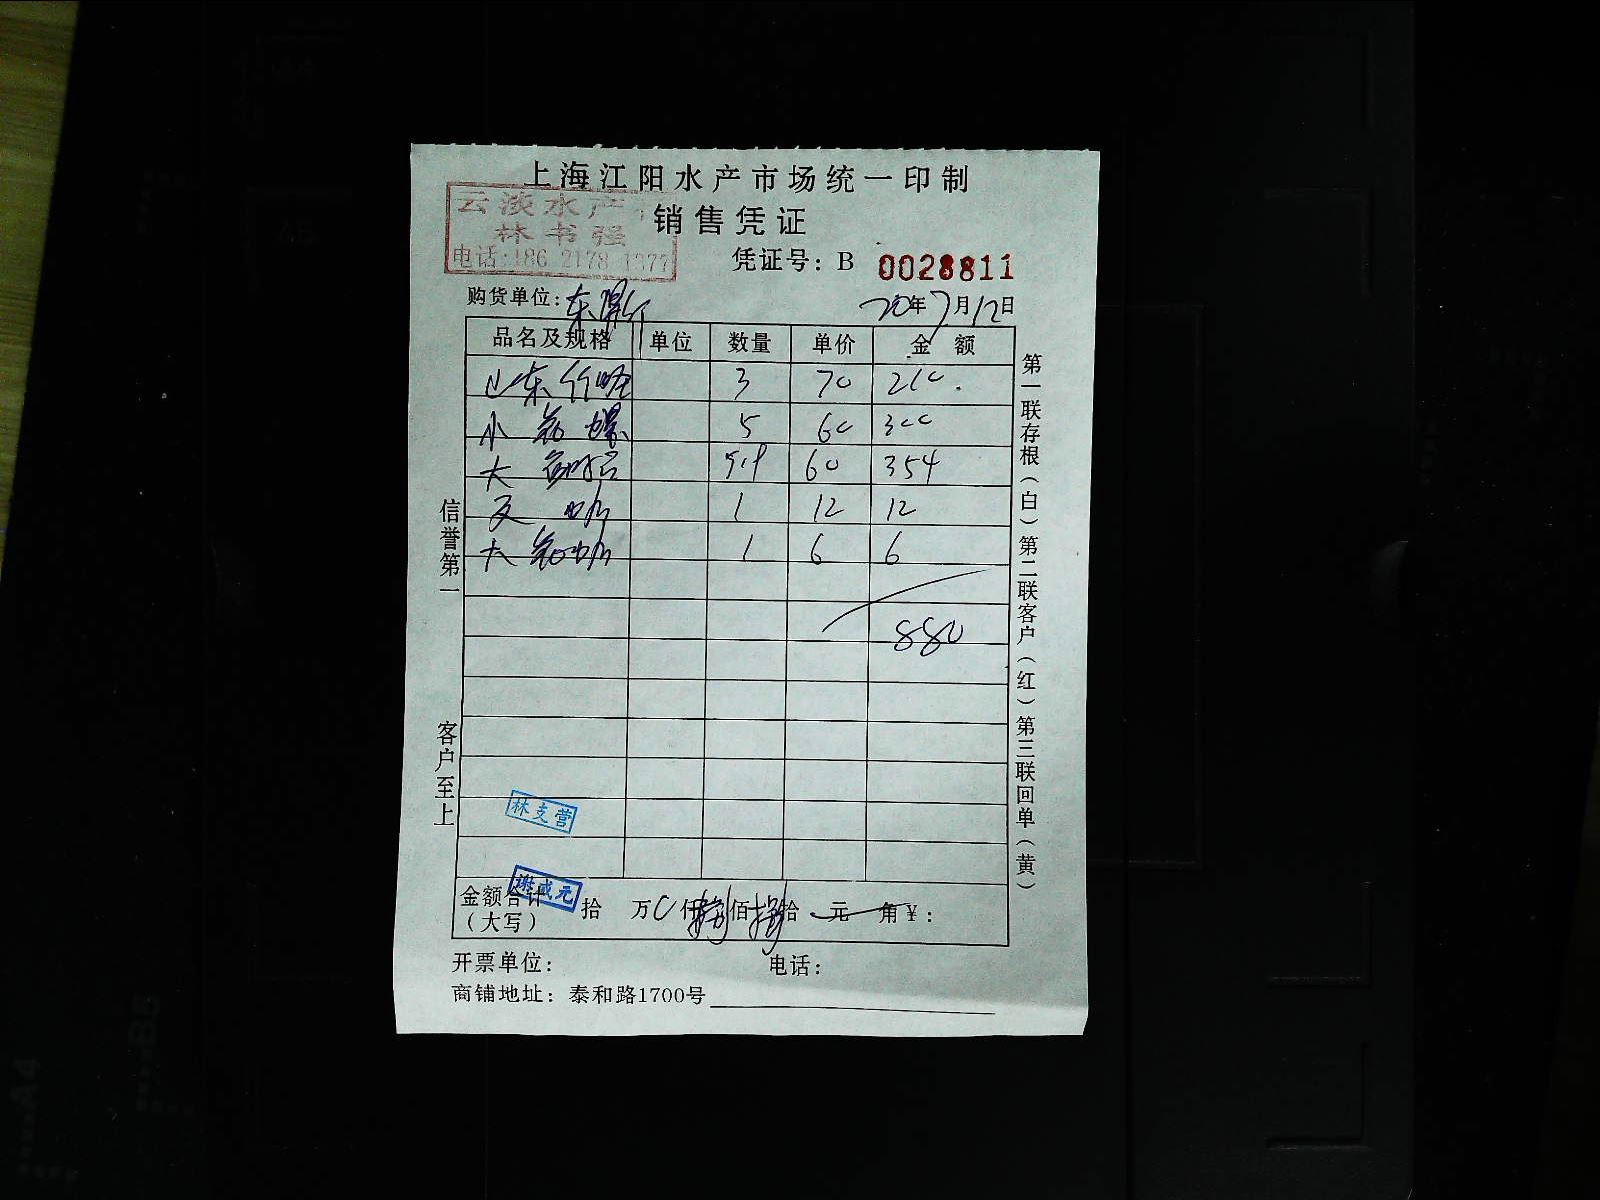 上海江阳水产市场统一印制
云淡水产
销售凭证
林书强
电话:186 2178 1377
凭证号: B 0028811
购货单位:
20年7月12日
品名及规格 单位 数量 单价 金额
山东 3 70 210.
小 5 60 300
大 60 354
1 12 12
大 1 6 6
880
信誉第一
客户至上
第一联存根(白)第二联客户(红)第三联回单(黄)
林支营
谢成元
金额合计(大写) 拾 万 0 仟 捌 佰 捌 拾 元 角 ¥:
开票单位: 电话:
商铺地址: 泰和路1700号